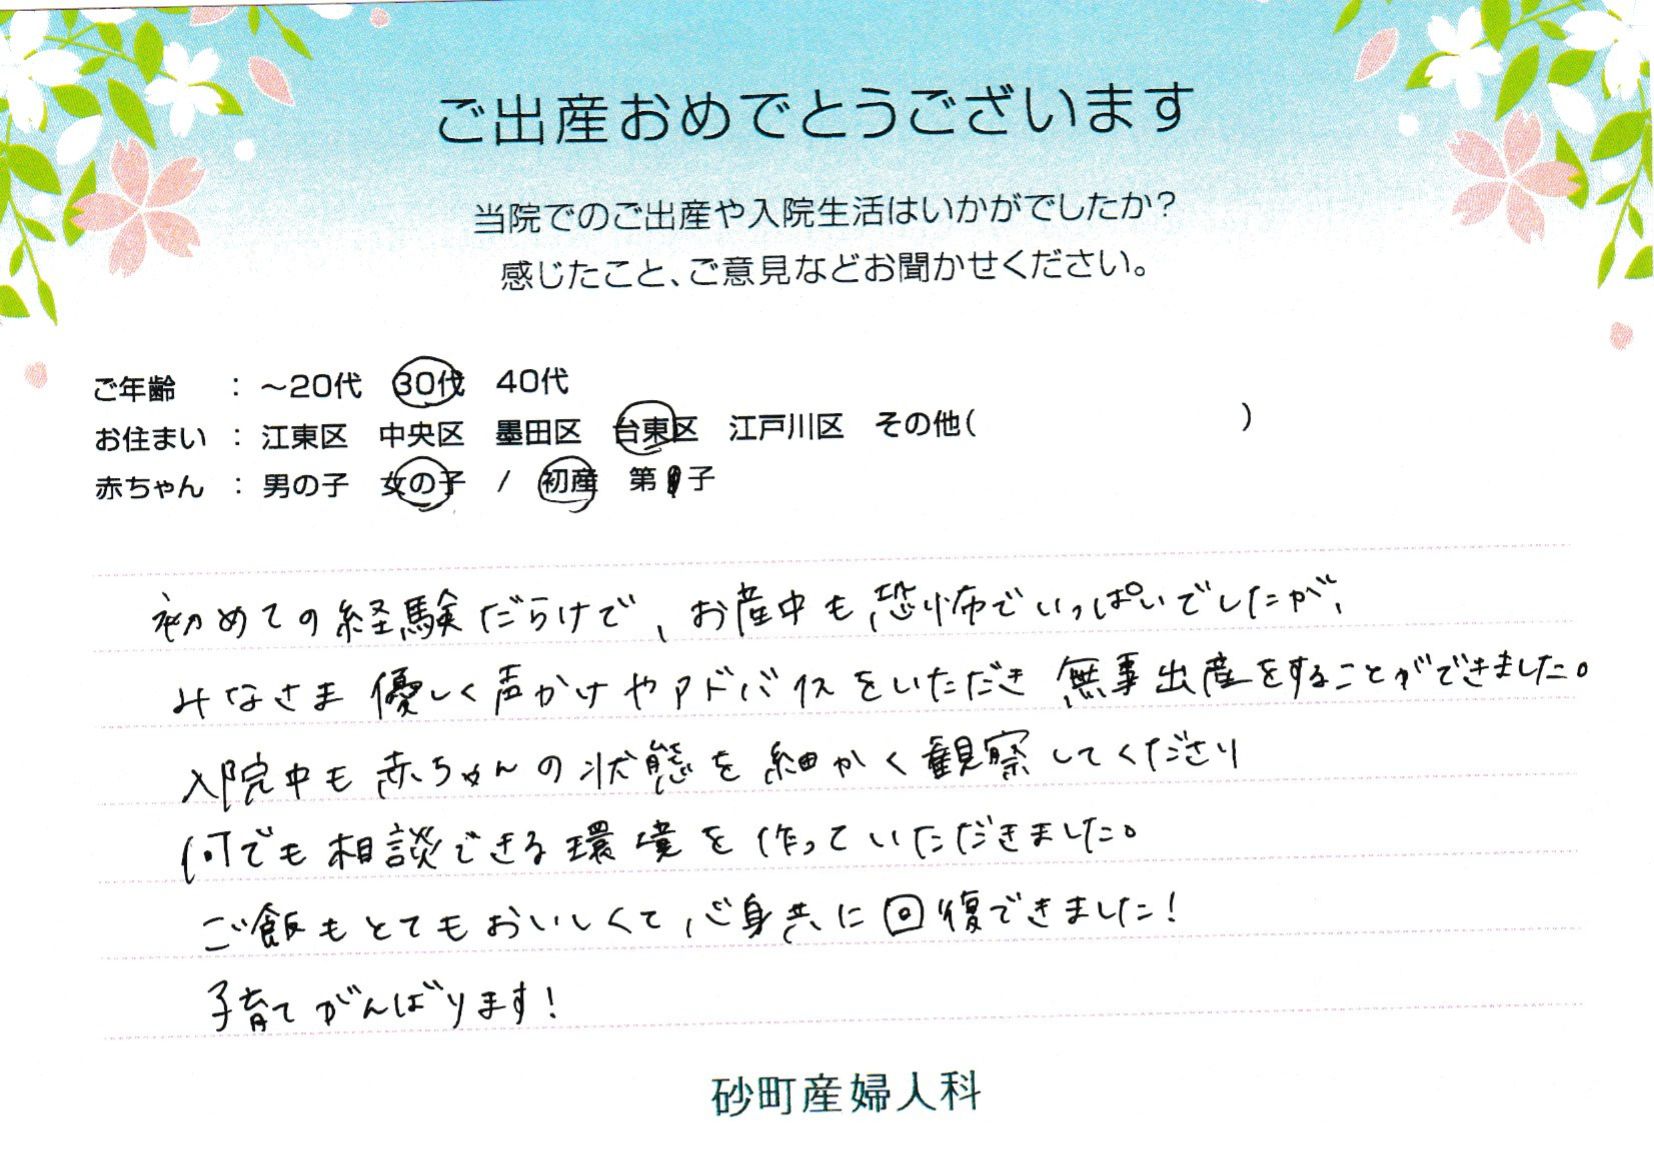 ご出産おめでとうございます
当院でのご出産や入院生活はいかがでしたか?
感じたこと、ご意見などお聞かせください。
ご年齢 : ～20代 30代 40代
お住まい : 江東区 中央区 墨田区 台東区 江戸川区 その他( )
赤ちゃん : 男の子 女の子 / 初産 第 子
初めての経験だらけで、お産中も恐怖でいっぱいでしたが、
みなさま優しく声かけやアドバイスをいただき無事出産をすることができました。
入院中も赤ちゃんの状態を細かく観察してくださり
何でも相談できる環境を作っていただきました。
ご飯もとてもおいしくて心身共に回復できました!
子育てがんばります!
砂町産婦人科